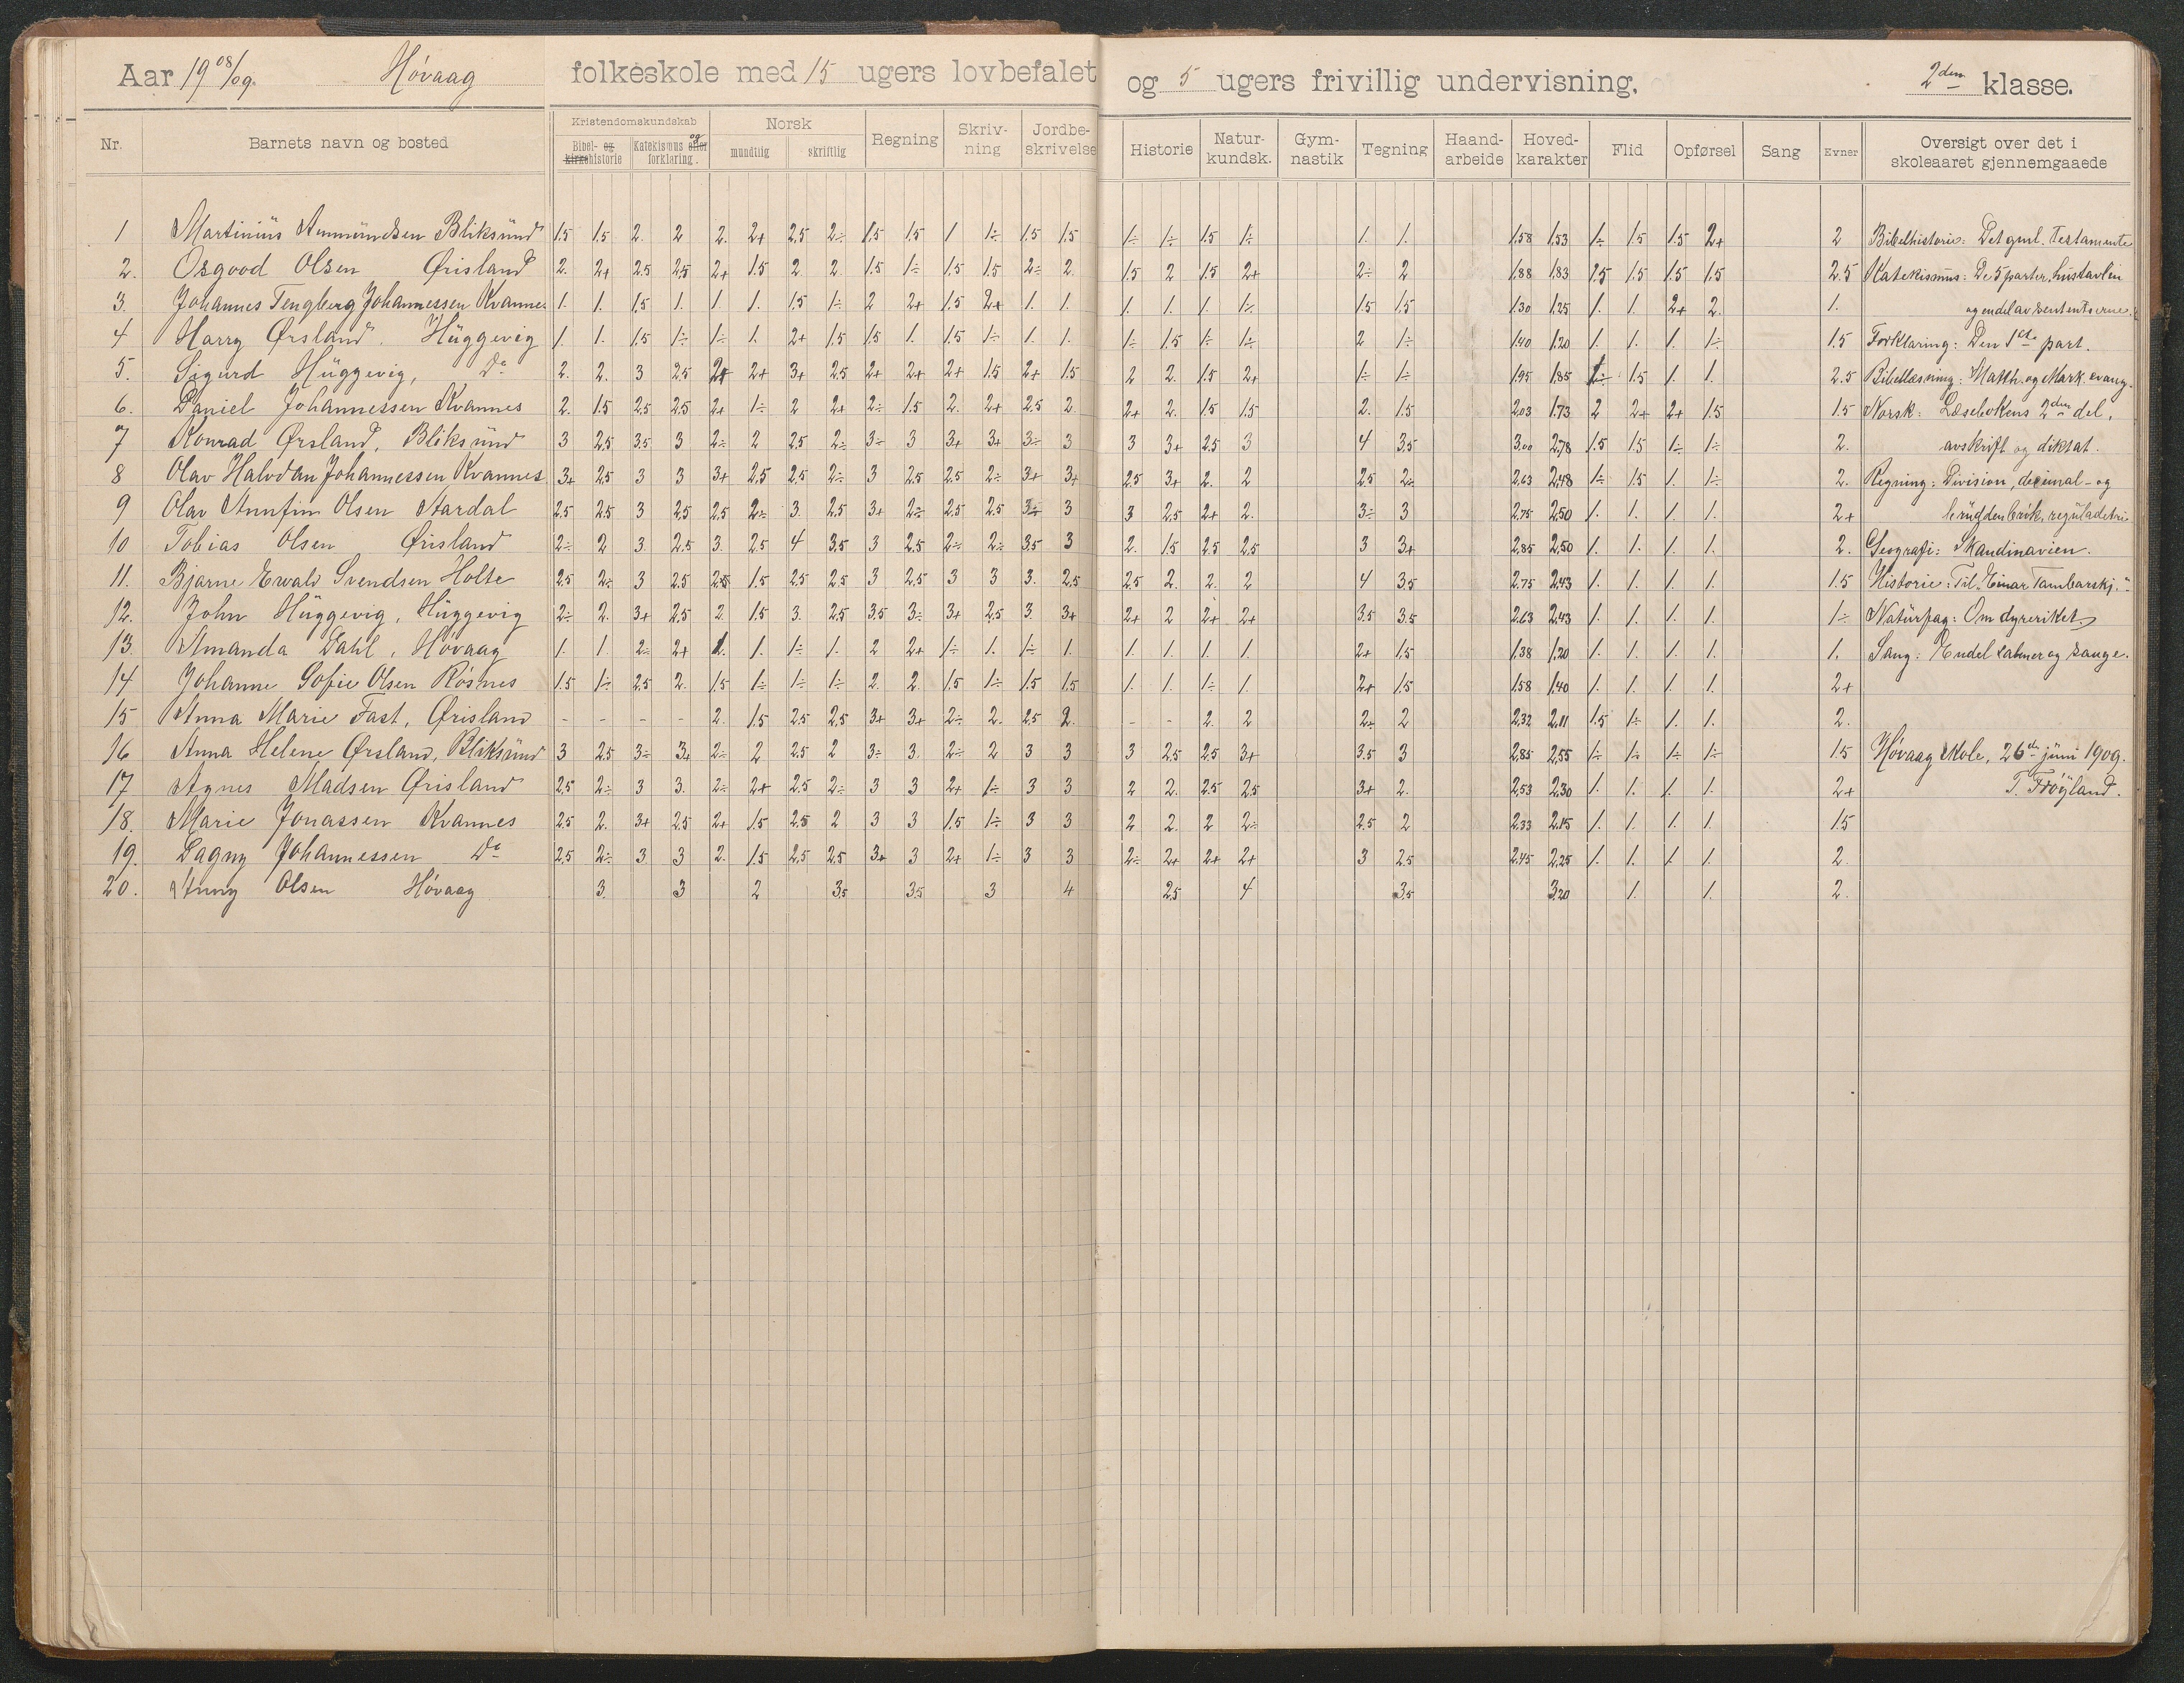 Aar 1908/09. Høvaag folkeskole med 15 ugers lovbefalet og 5 ugers frivillig undervisning, 2den klasse.
Nr. Barnets navn og bosted Kristendomskundskab Bibel- og kirkehistorie Katekismus eller og forklaring. Norsk mundtlig skriftlig Regning Skriv-ning Jordbe-skrivelse Historie Natur-kundsk. Gym-nastik Tegning Haand-arbeide Hoved-karakter Flid Opførsel Sang Evner Oversigt over det i skoleaaret gjennemgaaede
1 Martinius Anmundsen Bliksund 1.5 1.5 2. 2 2. 2+ 2.5 2÷ 1.5 1.5 1 1÷ 1.5 1.5 1÷ 1÷ 1.5 1÷ 1. 1. 1.58 1.53 1÷ 1.5 1.5 2+ 2 Bibelhistorie: Det gml. Testamente
2. Osgood Olsen Ørisland 2. 2+ 2.5 2.5 2+ 1.5 2. 2. 1.5 1÷ 1.5 1.5 2÷ 2. 1.5 2 1.5 2+ 2÷ 2 1.88 1.83 1.5 1.5 1.5 1.5 2.5 Katekismus: De 5 parter, hustavlen
3. Johannes Tengberg Johannessen Kvannes 1. 1. 1.5 1. 1. 1. 1.5 1÷ 2 2+ 1.5 2+ 1. 1. 1. 1. 1. 1÷ 1.5 1.5 1.30 1.25 1. 1. 2+ 2. 1. og endel av sententserne.
4 Harry Ørsland. Huggevig 1. 1. 1.5 1÷ 1÷ 1. 2+ 1.5 1.5 1. 1.5 1÷ 1. 1. 1÷ 1.5 1÷ 1÷ 2 1÷ 1.40 1.20 1. 1. 1. 1÷ 1.5 Forklaring: Den 1ste part.
5. Sigurd Huggevig, Do 2. 2. 3 2.5 2+ 2+ 3+ 2.5 2+ 2+ 2+ 1.5 2+ 1.5 2 2. 1.5 2+ 1÷ 1÷ 1.95 1.85 1÷ 1.5 1. 1. 2.5 Bibellæsning: Matth. og Mark. evang.
6. Daniel Johannessen Kvannes 2. 1.5 2.5 2.5 2+ 1÷ 2 2+ 2÷ 1.5 2. 2+ 2.5 2 2+ 2. 1.5 1.5 2. 1.5 2.03 1.73 2 2+ 2+ 1.5 1.5 Norsk: Læsebokens 2den del,
7 Konrad Ørsland, Bliksund 3 2.5 3.5 3 2÷ 2 2.5 2÷ 3÷ 3 3+ 3+ 3÷ 3 3 3+ 2.5 3 4 3.5 3.00 2.78 1.5 1.5 1÷ 1÷ 2. avskrift og diktat.
8 Olav Halvdan Johannessen Kvannes 3+ 2.5 3 3 3+ 2.5 2.5 2÷ 3 2.5 2.5 2÷ 3+ 3+ 2.5 3+ 2. 2 2.5 2÷ 2.63 2.48 1÷ 1.5 1. 1÷ 2. Regning: Division, decimal- og
9 Olav Arnfinn Olsen Aardal 2.5 2.5 3 2.5 2.5 2÷ 3. 2.5 3+ 2÷ 2.5 2.5 3÷ 3 3 2.5 2+ 2. 3÷ 3 2.75 2.50 1. 1. 1. 1. 2+ brudden brøk, reguladetri
10 Tobias Olsen Ørisland 2÷ 2 3. 2.5 3. 2.5 4 3.5 3 2.5 2÷ 2÷ 3.5 3 2. 1.5 2.5 2.5 3 3+ 2.85 2.50 1. 1. 1. 1. 2. Geografi: Skandinavien.
11. Bjarne Ewald Svendsen Holte 2.5 2÷ 3 2.5 2.5 1.5 2.5 2.5 3 2.5 3 3 3. 2.5 2.5 2. 2. 2 4 3.5 2.75 2.43 1. 1. 1. 1. 1.5 Historie: Til "Einar Tambarskj."
12. John Huggevig, Huggevig 2÷ 2. 3+ 2.5 2. 1.5 3. 2.5 3.5 3÷ 3+ 2.5 3 3+ 2+ 2 2+ 2+ 3.5 3.5 2.63 2.43 1. 1. 1. 1. 1÷ Naturfag: Om dyreriket
13. Amanda Dahl, Høvaag 1. 1. 2÷ 2+ 1. 1. 1÷ 1. 2 2+ 1÷ 1. 1÷ 1. 1. 1. 1. 1. 2+ 1.5 1.38 1.20 1. 1. 1. 1. 1. Sang: Endel salmer og sange.
14 Johanne Sofie Olsen Røsnes 1.5 1÷ 2.5 2. 1.5 1÷ 1÷ 1÷ 2. 2. 1.5 1÷ 1.5 1.5 1. 1. 1÷ 1. 2+ 1.5 1.58 1.40 1. 1. 1. 1. 2+
15 Anna Marie Fast, Ørisland - - - - 2. 1.5 2.5 2.5 3+ 3+ 2÷ 2. 2.5 2. - - 2. 2 2÷ 2 2.32 2.11 1.5 1÷ 1. 1. 2.
16 Anna Helene Ørsland, Bliksund 3 2.5 3÷ 3+ 2÷ 2 2.5 2 3÷ 3. 2÷ 2 3 3 3 2.5 2.5 3+ 3.5 3 2.85 2.55 1÷ 1÷ 1÷ 1÷ 1.5 Høvaag skole, 26de juni 1909.
17 Agnes Madsen Ørisland 2.5 2÷ 3 3. 2÷ 2+ 2.5 2÷ 3 3 2+ 1÷ 3 3 2 2. 2.5 2.5 3+ 2. 2.53 2.30 1. 1. 1. 1. 2+ T. Frøyland.
18. Marie Jonassen Kvannes 2.5 2. 3+ 2.5 2+ 1.5 2.5 2 3 3 1.5 1÷ 3 3 2 2. 2 2÷ 2.5 2 2.33 2.15 1. 1. 1. 1. 1.5
19. Dagny Johannessen Do 2.5 2÷ 3. 3 2. 1.5 2.5 2.5 3+ 3 2+ 1÷ 3 3 2÷ 2+ 2+ 2+ 3 2.5 2.45 2.25 1. 1. 1. 1. 2.
20. Anny Olsen Høvaag 3. 3 2 3.5 3.5 3 4 2.5 4 3.5 3.20 1. 1. 2.